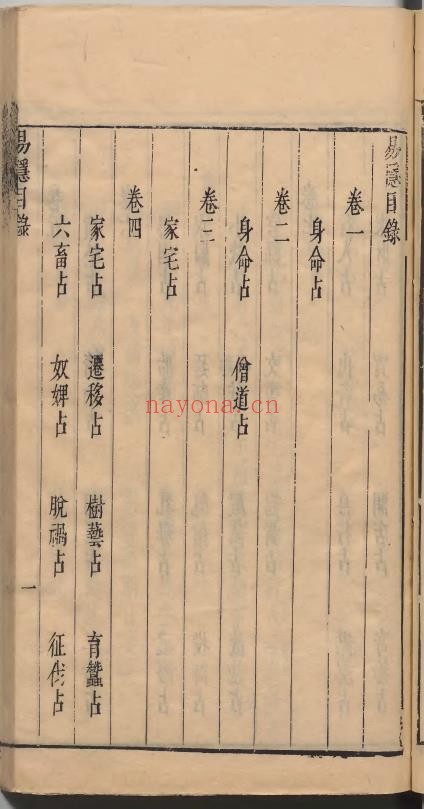 易隱目錄
卷一
身命占
卷二
身命占 僧道占
卷三
家宅占
卷四
家宅占 遷移占 樹藝占 育蠶占
六畜占 奴婢占 脫禍占 征伐占
易隱目錄
一
nayona.cn